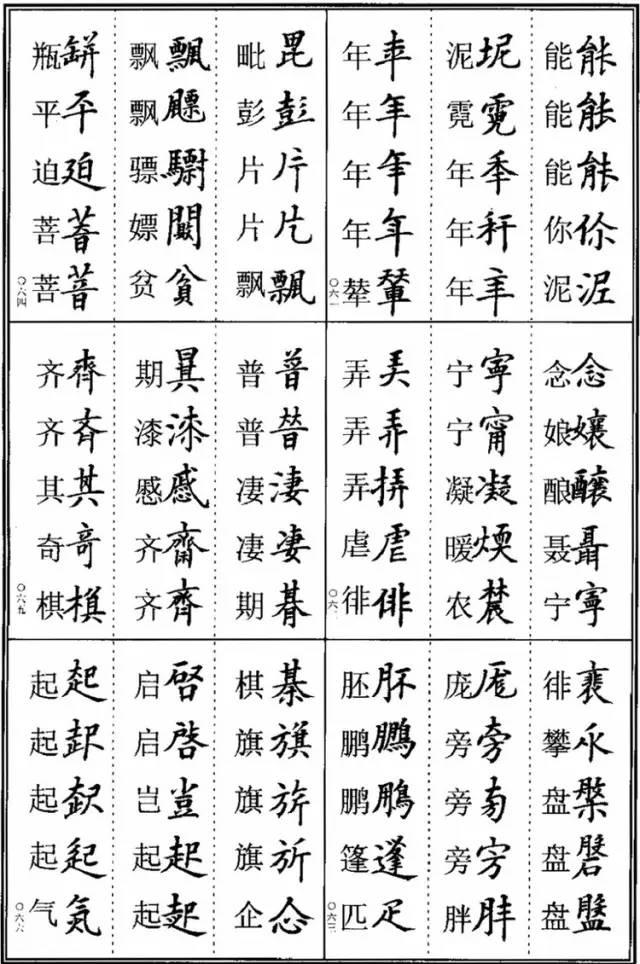 能能 能能 能能 你你 泥泥
泥坭 霓霓 年秊 年秆 年年
年年 年年 年年 年年 辇輦
〇六一
毗毘 彭彭 片片 片片 飘飄
飘飄 飘飃 骠驃 嫖闝 贫貧
瓶缾 平平 迫廹 菩蓄 菩菩
〇六四
念念 娘孃 酿釀 聂聶 宁寧
宁寧 宁甯 凝凝 暖煗 农農
弄弄 弄弄 弄挵 虐虐 徘俳
〇六
普普 普暜 凄淒 凄凄 期朞
期朞 漆漆 慼慼 齐齋 齐齊
齐齊 齐斉 其其 奇竒 棋棋
〇六九
徘裵 攀癶 盘槃 盘磐 盘盤
庞厖 旁旁 旁旁 旁㝑 胖胖
胚肧 鹏鵬 鹏鵬 篷蓬 匹疋
〇六三
棋棊 旗旗 旗旂 旗旂 企企
启啓 启啟 岂豈 起起 起起
起起 起起 起起 起起 气氣
〇六六